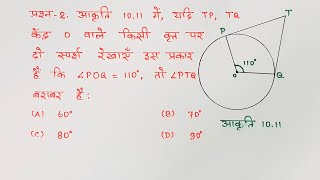 प्रश्न-2. आकृति 10.11 में, यदि TP, TQ
केंद्र O वाले किसी वृत्त पर
दो स्पर्श रेखाएँ इस प्रकार
हैं कि ∠POQ = 110°, तो ∠PTQ
बराबर है:
(A) 60° (B) 70°
(C) 80° (D) 90°
T
P
110°
O
Q
आकृति 10.11